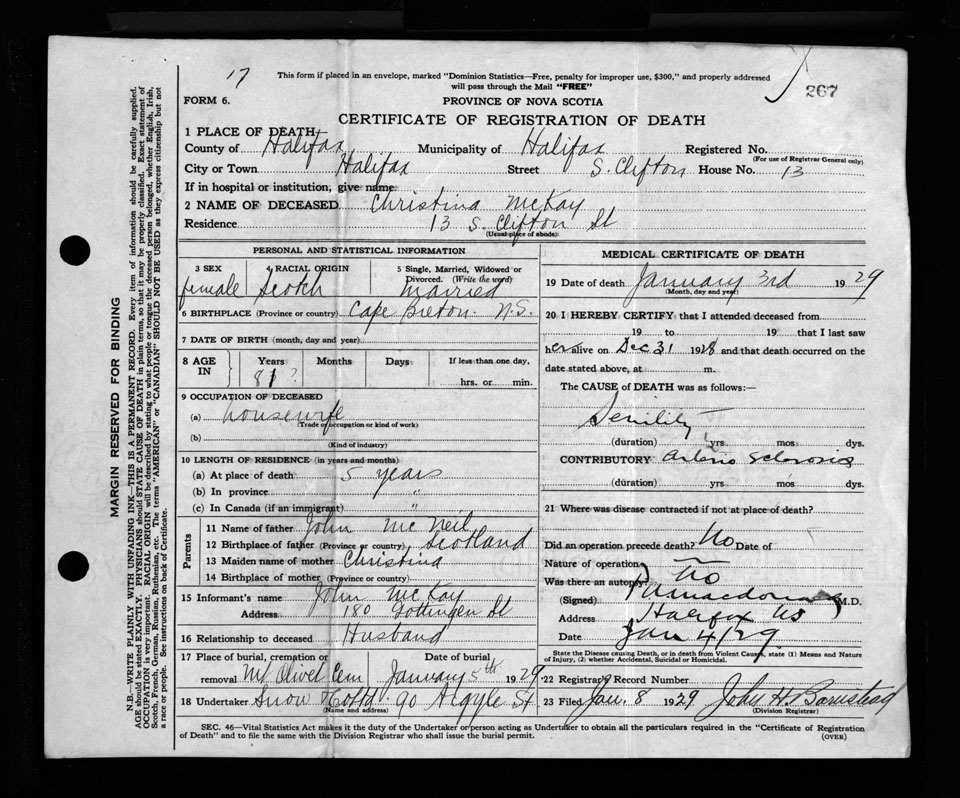 17
267
This form if placed in an envelope, marked "Dominion Statistics—Free, penalty for improper use, $300," and properly addressed
will pass through the Mail "FREE"
FORM 6.
PROVINCE OF NOVA SCOTIA
CERTIFICATE OF REGISTRATION OF DEATH
1 PLACE OF DEATH
County of Halifax Municipality of Halifax Registered No.
(For use of Registrar General only)
City or Town Halifax Street S. Clifton House No. 13
If in hospital or institution, give name
2 NAME OF DECEASED Christina McKay
Residence 13 S. Clifton St
(Usual place of abode)
PERSONAL AND STATISTICAL INFORMATION
3 SEX 4 RACIAL ORIGIN 5 Single, Married, Widowed or Divorced. (Write the word)
female Scotch Married
6 BIRTHPLACE (Province or country) Cape Breton N.S.
7 DATE OF BIRTH (month, day and year)
8 AGE IN Years Months Days If less than one day,
81 ? hrs. or min.
9 OCCUPATION OF DECEASED
(a) housewife
(Trade or occupation or kind of work)
(b)
(Kind of industry)
10 LENGTH OF RESIDENCE (in years and months)
(a) At place of death 5 years
(b) In province "
(c) In Canada (if an immigrant) "
Parents
11 Name of father John McNeil
12 Birthplace of father (Province or country) Scotland
13 Maiden name of mother Christina
14 Birthplace of mother (Province or country)
15 Informant's name John McKay
Address 180 Gottingen St
16 Relationship to deceased Husband
17 Place of burial, cremation or removal Mt Olivet Cem Date of burial January 5th 1929
18 Undertaker Snow & Co Ltd. 90 Argyle St
(Name and address)
MEDICAL CERTIFICATE OF DEATH
19 Date of death January 3rd 1929
(Month, day and year)
20 I HEREBY CERTIFY that I attended deceased from
19 to 19 that I last saw
her alive on Dec 31 1928 and that death occurred on the
date stated above, at m.
The CAUSE of DEATH was as follows:—
Senility
(duration) yrs. mos. dys.
CONTRIBUTORY Arterio Sclerosis
(duration) yrs. mos. dys.
21 Where was disease contracted if not at place of death?
Did an operation precede death? No Date of
Nature of operation
Was there an autopsy? No
(Signed) M.D.
Address Halifax NS
Date Jan 4/29
State the Disease causing Death, or in death from Violent Causes, state (1) Means and Nature
of Injury, (2) whether Accidental, Suicidal or Homicidal.
22 Registrar's Record Number
23 Filed Jan. 8 1929 John H. Barnstead
(Division Registrar)
SEC. 46—Vital Statistics Act makes it the duty of the Undertaker or person acting as Undertaker to obtain all the particulars required in the "Certificate of Registration
of Death" and to file the same with the Division Registrar who shall issue the burial permit.
(OVER)
MARGIN RESERVED FOR BINDING
N.B.—WRITE PLAINLY WITH UNFADING INK—THIS IS A PERMANENT RECORD. Every item of information should be carefully supplied.
AGE should be stated EXACTLY. PHYSICIANS should STATE CAUSE OF DEATH in plain terms, so that it may be properly classified. Exact statement of
OCCUPATION is very important. RACIAL ORIGIN will be described by stating to what people or tongue the deceased person belonged, whether English, Irish,
Scotch, French, German, Russian, Ruthenian, etc. The terms "AMERICAN" or "CANADIAN" SHOULD NOT BE USED as they express citizenship but not
a race or people. See instructions on back of Certificate.